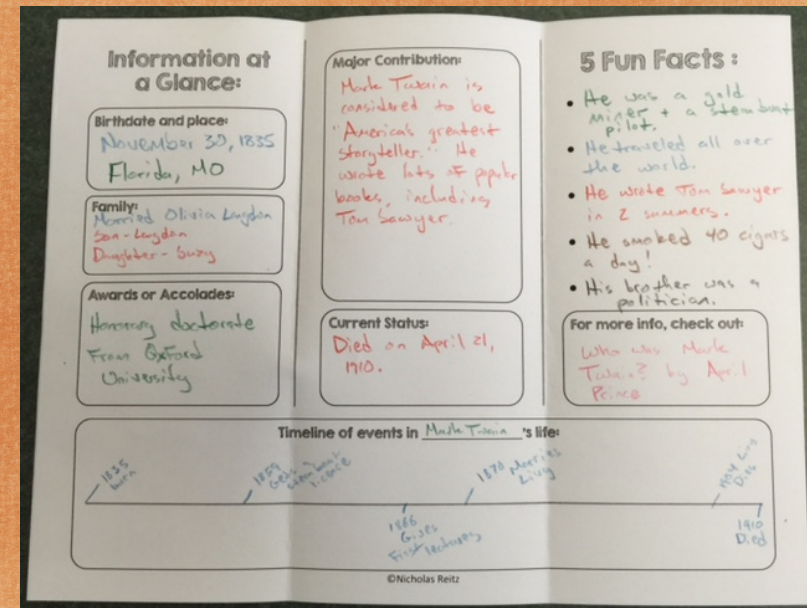 Information at
a Glance:
Birthdate and place:
November 30, 1835
Florida, MO
Family:
Married Olivia Langdon
Son - Langdon
Daughter - Suzy
Awards or Accolades:
Honorary doctorate
From Oxford
University
Major Contribution:
Mark Twain is
considered to be
"America's greatest
storyteller." He
wrote lots of popular
books, including
Tom Sawyer.
Current Status:
Died on April 21,
1910.
5 Fun Facts :
• He was a gold
miner + a steamboat
pilot.
• He traveled all over
the world.
• He wrote Tom Sawyer
in 2 summers.
• He smoked 40 cigars
a day!
• His brother was a
politician.
For more info, check out:
Who was Mark
Twain? by April
Prince
Timeline of events in Mark Twain 's life:
1835
born
1859
Gets
steamboat
licence
1866
Gives
First lectures
1870 Marries
Livy
1904 Livy
Dies
1910
Died
©Nicholas Reitz